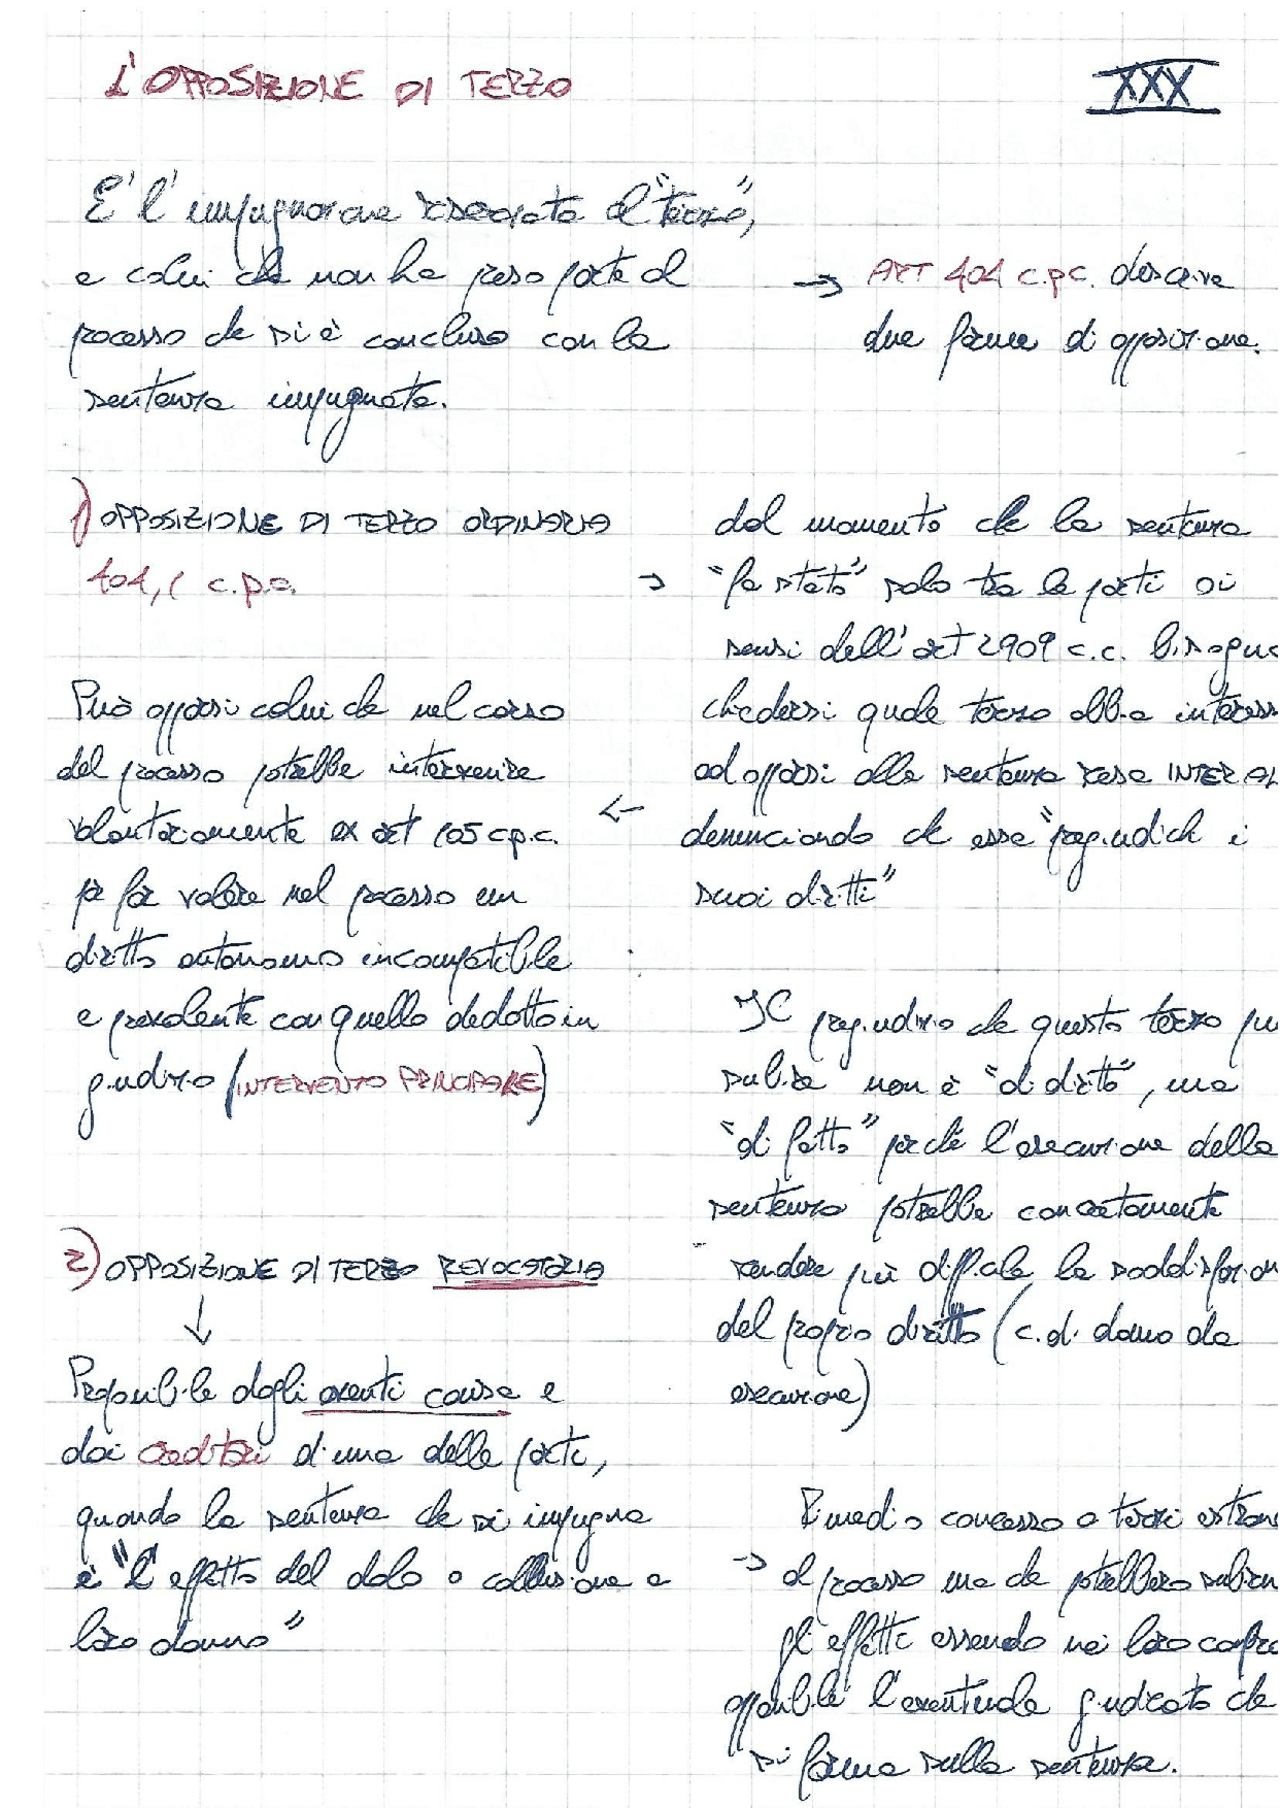 L'OPPOSIZIONE DI TERZO
XXX
E' l'impugnazione riservata al "terzo",
a colui che non ha preso parte al
processo che si è concluso con la
sentenza impugnata.
→ ART 404 c.p.c. descrive
due forme di opposizione.
1) OPPOSIZIONE DI TERZO ORDINARIA
404, 1 c.p.c.
→
dal momento che la sentenza
"fa stato" solo tra le parti ai
sensi dell'art 2909 c.c. bisogna
chiedersi quale terzo abbia interess
ad opporsi alla sentenza resa INTER AL
denunciando che essa "pregiudichi i
suoi diritti"
←
Può opporsi colui che nel corso
del processo potrebbe intervenire
volontariamente ex art 105 c.p.c.
per far valere nel processo un
diritto autonomo incompatibile
e prevalente con quello dedotto in
giudizio (INTERVENTO PRINCIPALE)
Il pregiudizio che questo terzo pu
subire non è "di diritto", ma
"di fatto" perchè l'esecuzione della
sentenza potrebbe concretamente
rendere più difficile la soddisfazion
del proprio diritto (c.d. danno da
esecuzione)
2) OPPOSIZIONE DI TERZO REVOCATORIA
↓
Proponibile dagli aventi causa e
dai creditori d'una delle parti,
quando la sentenza che si impugna
è "l'effetto del dolo o collusione a
loro danno"
Rimedio concesso a terzi estrane
→ al processo ma che potrebbero subirn
gli effetti essendo nei loro confro
opponibile l'eventuale giudicato che
si forma sulla sentenza.